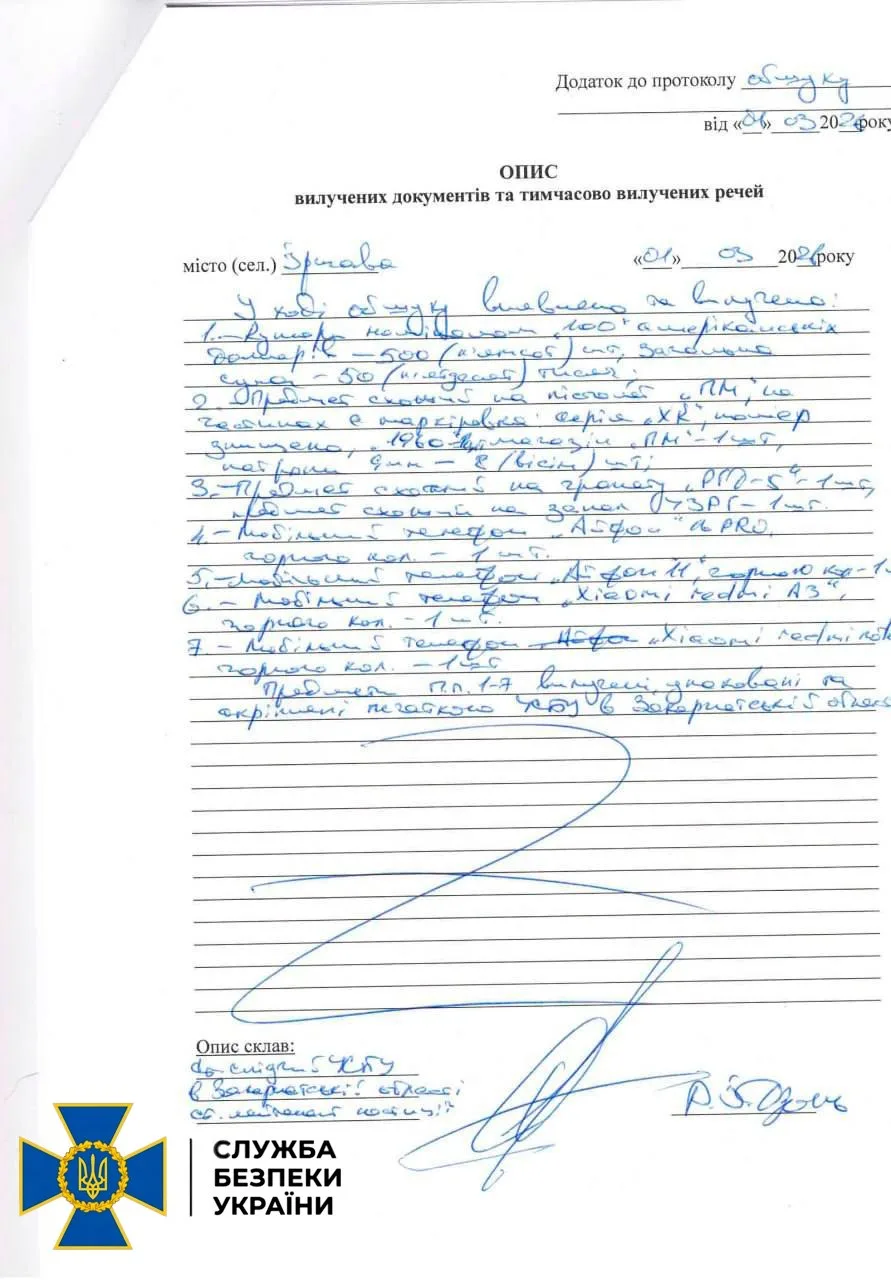 Додаток до протоколу обшуку
від «01» 03 2026 року
ОПИС
вилучених документів та тимчасово вилучених речей
місто (сел.) Іршава «01» 03 2026 року
У ході обшуку виявлено та вилучено:
1. – Купюри номіналом „100" американських
доларів – 500 (п'ятсот) шт, загальна
сума – 50 (п'ятдесят) тисяч;
2. – Предмет схожий на пістолет „ПМ", на
частинах є маркіровка: серія „ХК", номер
знищено, „1960 магазін „ПМ" – 1 шт,
патрони 9мм – 8 (вісім) шт;
3. – Предмет схожий на гранату „РГД-5" – 1 шт,
предмет схожий на запал УЗРГ – 1 шт.
4. – Мобільний телефон „Айфон" PRO,
чорного кол. – 1 шт.
5. – Мобільний телефон „Айфон 11", чорного кол – 1
6. – Мобільний телефон „Xiaomi redmi A3",
чорного кол. – 1 шт.
7. – Мобільний телефон „Xiaomi redmi note
чорного кол. – 1 шт
Предмети п.п. 1-7 вилучені, упаковані та
скріплені печаткою УСБУ в Закарпатській області
Опис склав:
слідчий УСБУ
в Закарпатській області
ст. лейтенант юстиції
СЛУЖБА
БЕЗПЕКИ
УКРАЇНИ